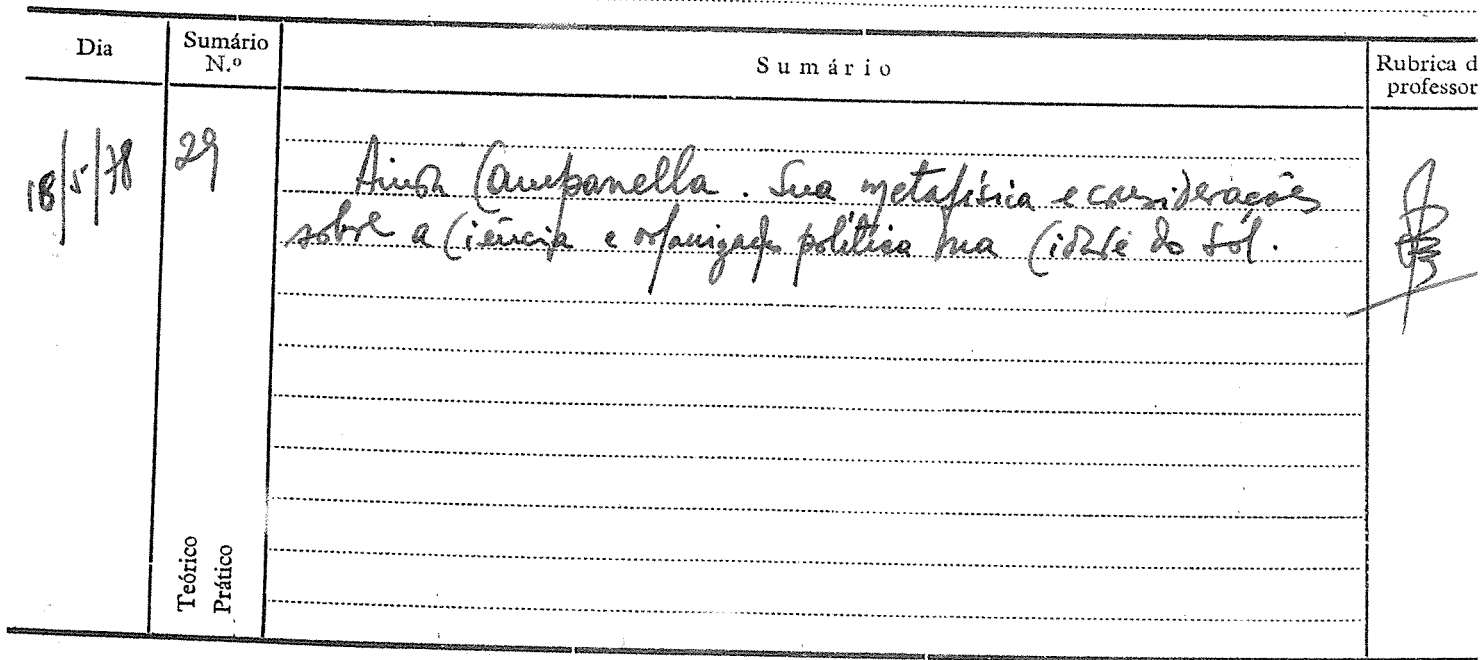 Dia
Sumário
N.º
Sumário
Rubrica d
professor
18/5/78
29
Ainda Campanella. Sua metafísica e considerações
sobre a Ciência e organização política na Cidade do Sól.
Teórico
Prático